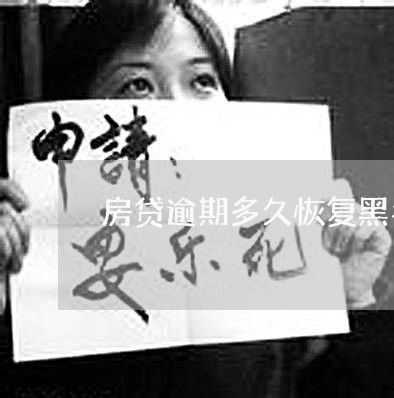 申請：
房贷逾期多久恢复黑
安乐死